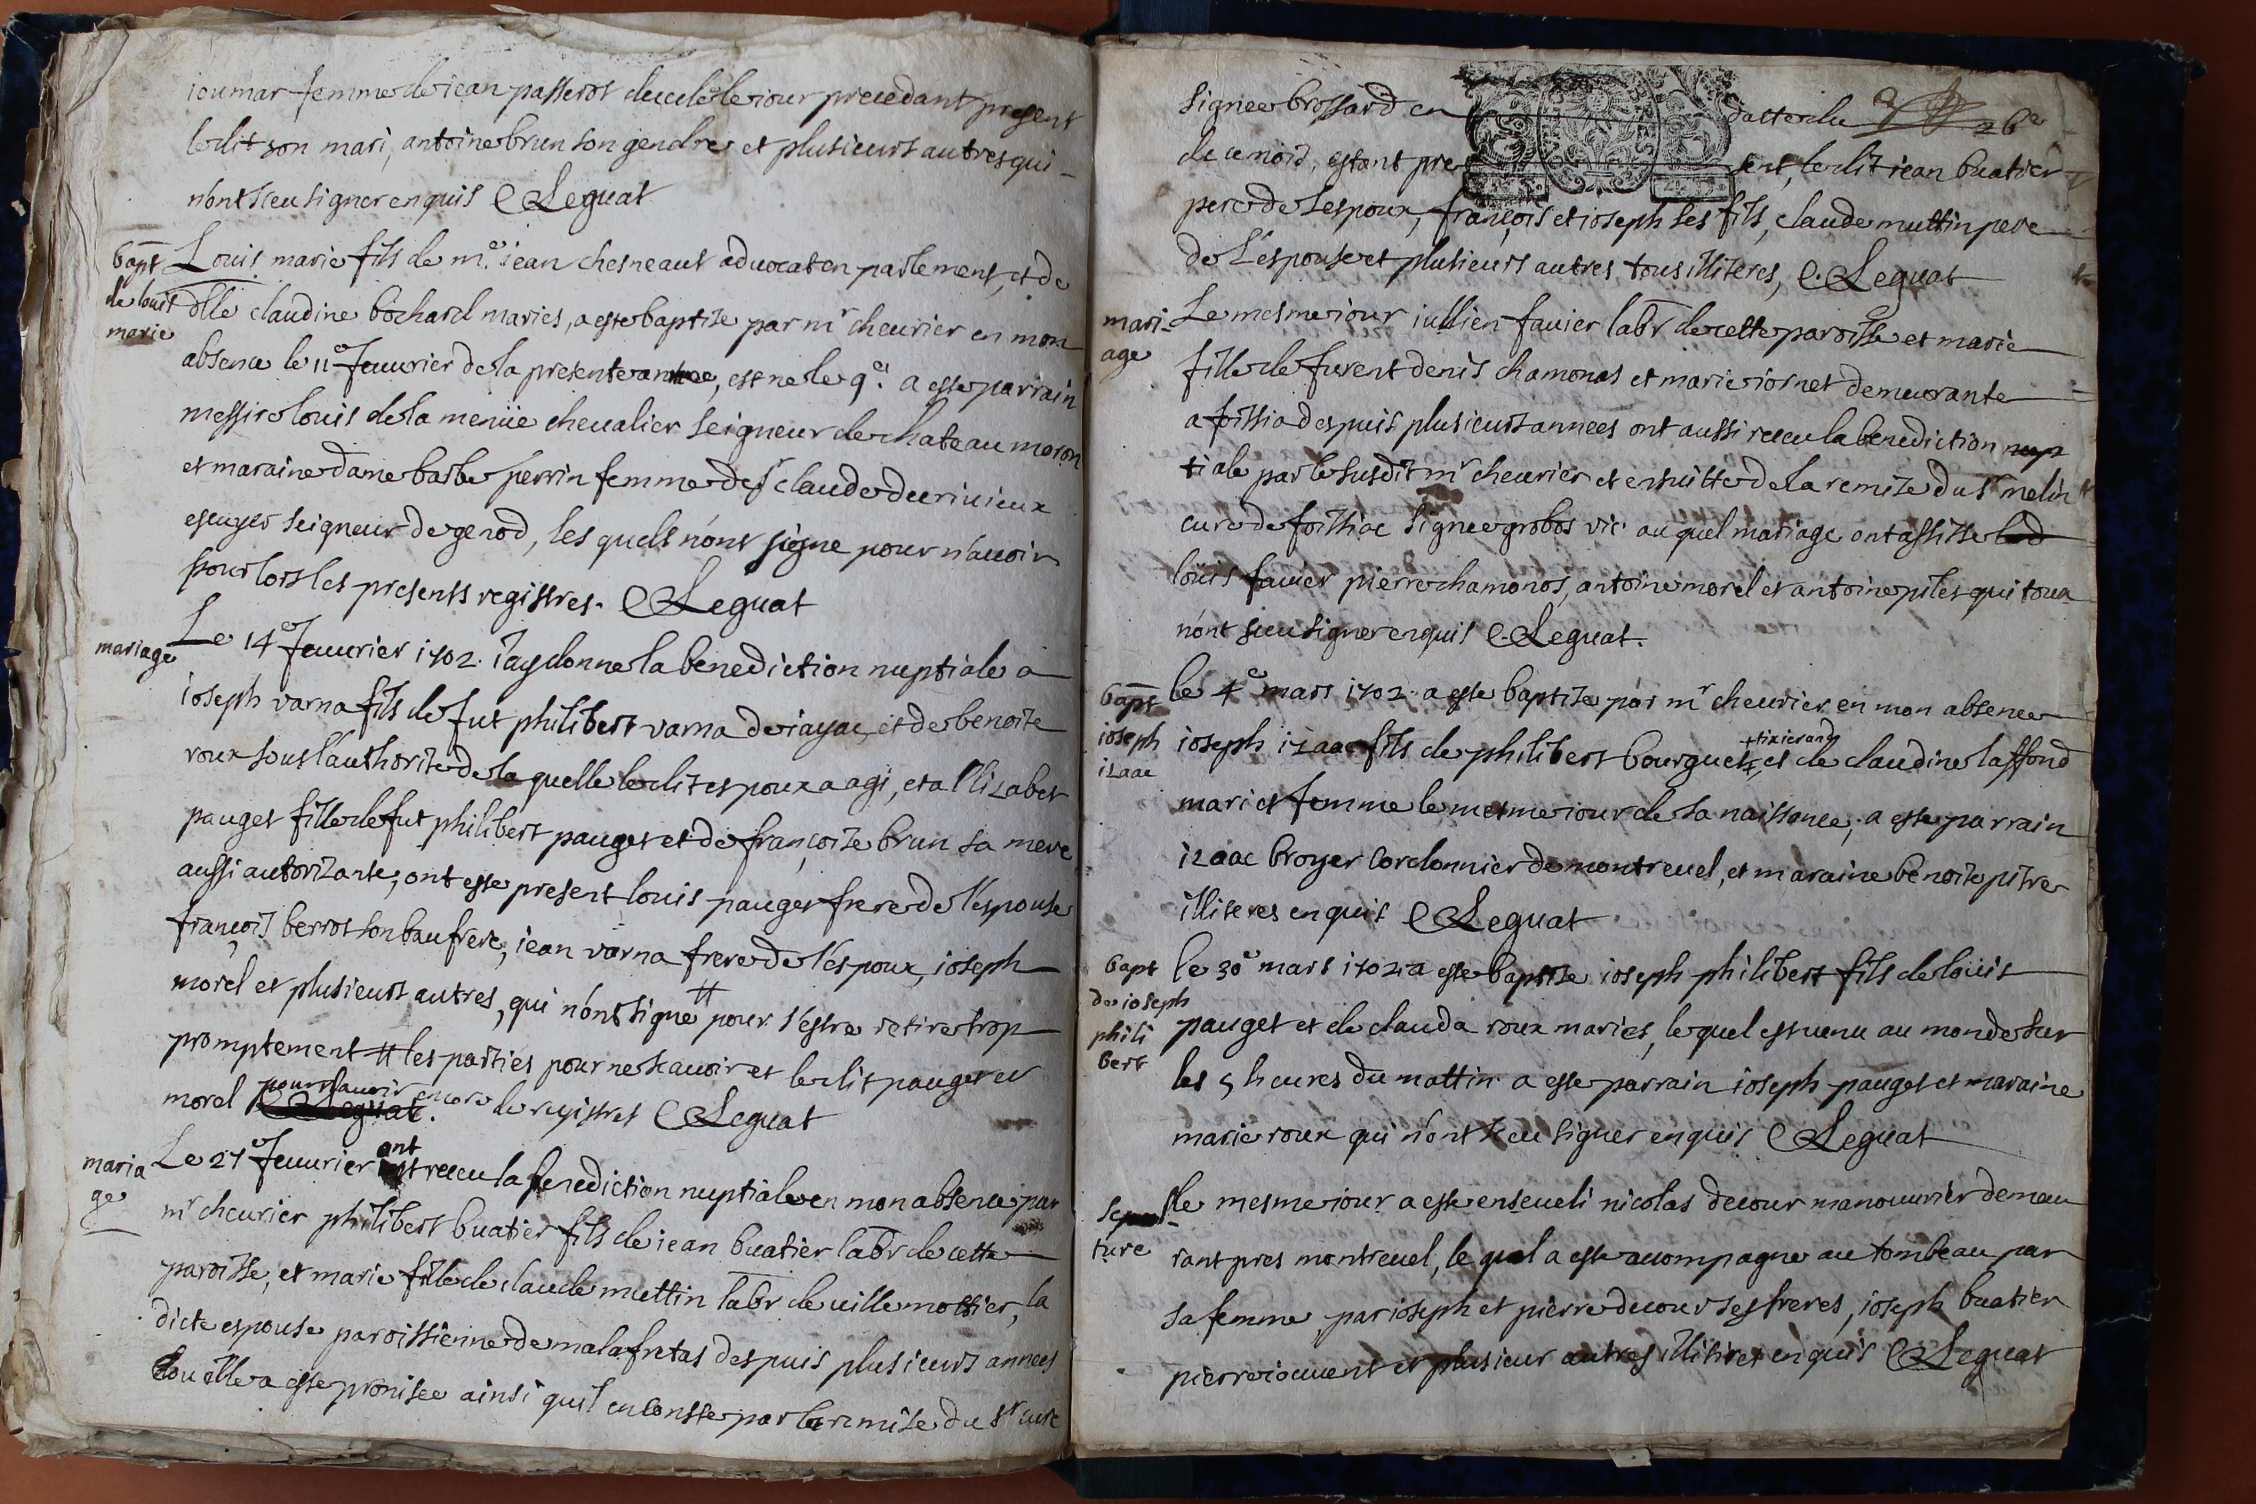 ioumar femme de iean passerot decedé le iour precedant present
ledit son mari, antoine brun son gendre et plusieurs autres qui
n'ont sceu signer enquis C Leguat
bapt
de louis
marie
Louis marie fils de me. iean chesneaut advocat en parlement, et de
dlle claudine bochard maries, a este baptize par mr cheurier en mon
absence le 11e feuurier de la presente annee, est ne le 9e. a este parrain
messire louis de la menüe chevalier seigneur de chateau moron
et maraine dame barbe perrin femme de sr claude du riuieux
escuyer seigneur de genod, les quels n'ont signe pour n'auoir
pour lors les presents registres. C Leguat
mariage
Le 14e feuurier 1702. i'ay donne la benediction nuptiale a
ioseph varna fils de fut philibert varna de iayac, et de benoite
roux sous l'authorite de la quelle ledit espoux a agi, et a elizabet
pauget fille de fut philibert pauget et de françoise brun sa mere
aussi autorizante, ont este present louis pauget frere de l'espouse
françois berrot son baufrere, iean varna frere de l'espoux, ioseph
morel et plusieurs autres, qui n'ont signe # pour s'estre retire trop
promptement # les parties pour ne scauoir et ledit pauget et
morel pour n'auoir encore le registres C Leguat
maria
ge
Le 27e feuurier ont receu la benediction nuptiale en mon absence par
mr cheurier philibert buatier fils de iean buatier labr de cette
paroisse, et marie fille de claude muttin labr de uillemottier, la
dicte espouse paroissienne de malafretas despuis plusieurs annees
ou elle a este promisee ainsi quil en conste par la remise du sr cure
signee brossard en datte du 26e
de ce mois, estant present, ledit iean buatier
pere de l'espoux, françois et ioseph ses fils, claude muttin pere
de l'espouse et plusieurs autres tous illiteres, C. Leguat
mari-
age
Le mesme iour iullien fauier labr de cette paroisse et marie
fille de furent denis chamonas et marie iornet demeurante
a foissia despuis plusieurs annees ont aussi receu la benediction nup
tiale par le susdit mr cheurier et ensuitte de la remize du sr melin
cure de foissiac signee grobos vic. au quel mariage ont assiste
louis fauier pierre chamonos, antoine morel et antoine pilet qui tous
n'ont sceu signer enquis C. Leguat.
bapt
ioseph
izaac
le 4e mars 1702. a este baptize par mr cheurier en mon absence
ioseph izaac fils de philibert bourguet + tixierand et de claudine laffond
mari et femme le mesme iour de sa naissance, a este parrain
izaac broyer cordonnier de montreuel, et maraine benoite pitre
illiteres enquis C Leguat
bapt
de ioseph
phili
bert
le 30e mars 1702 a este baptize ioseph philibert fils de loüis
pauget et de clauda roux maries, le quel est uenu au monde sur
les 5 heures du mattin. a este parrain ioseph pauget et maraine
marie roux qui n'ont sceu signer enquis C Leguat
sepul
ture
le mesme iour a este enseueli nicolas decour manouurier demeu
rant pres montreuel, le quel a este acompagne au tombeau par
sa femme, par ioseph et pierre decour ses freres, ioseph buatier
pierre iouuent et plusieur autres illitires enquis C Leguat